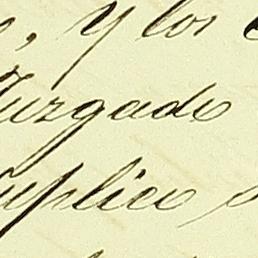 , y los
Juzgado
suplico